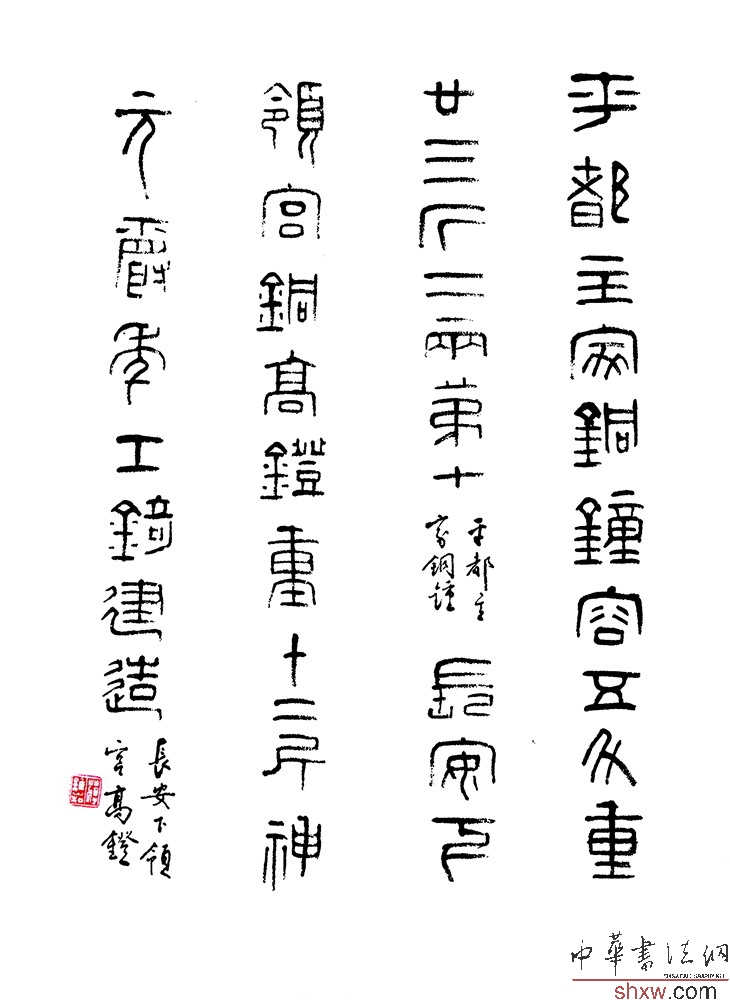 平都主家銅鐘容五斗重
廿三斤三兩第十
平都主
家銅鐘
長安下
領宮銅高鐙重十二斤神
元爵年工錡建造
長安下領
宮高鐙
中華書法網
shxw.com